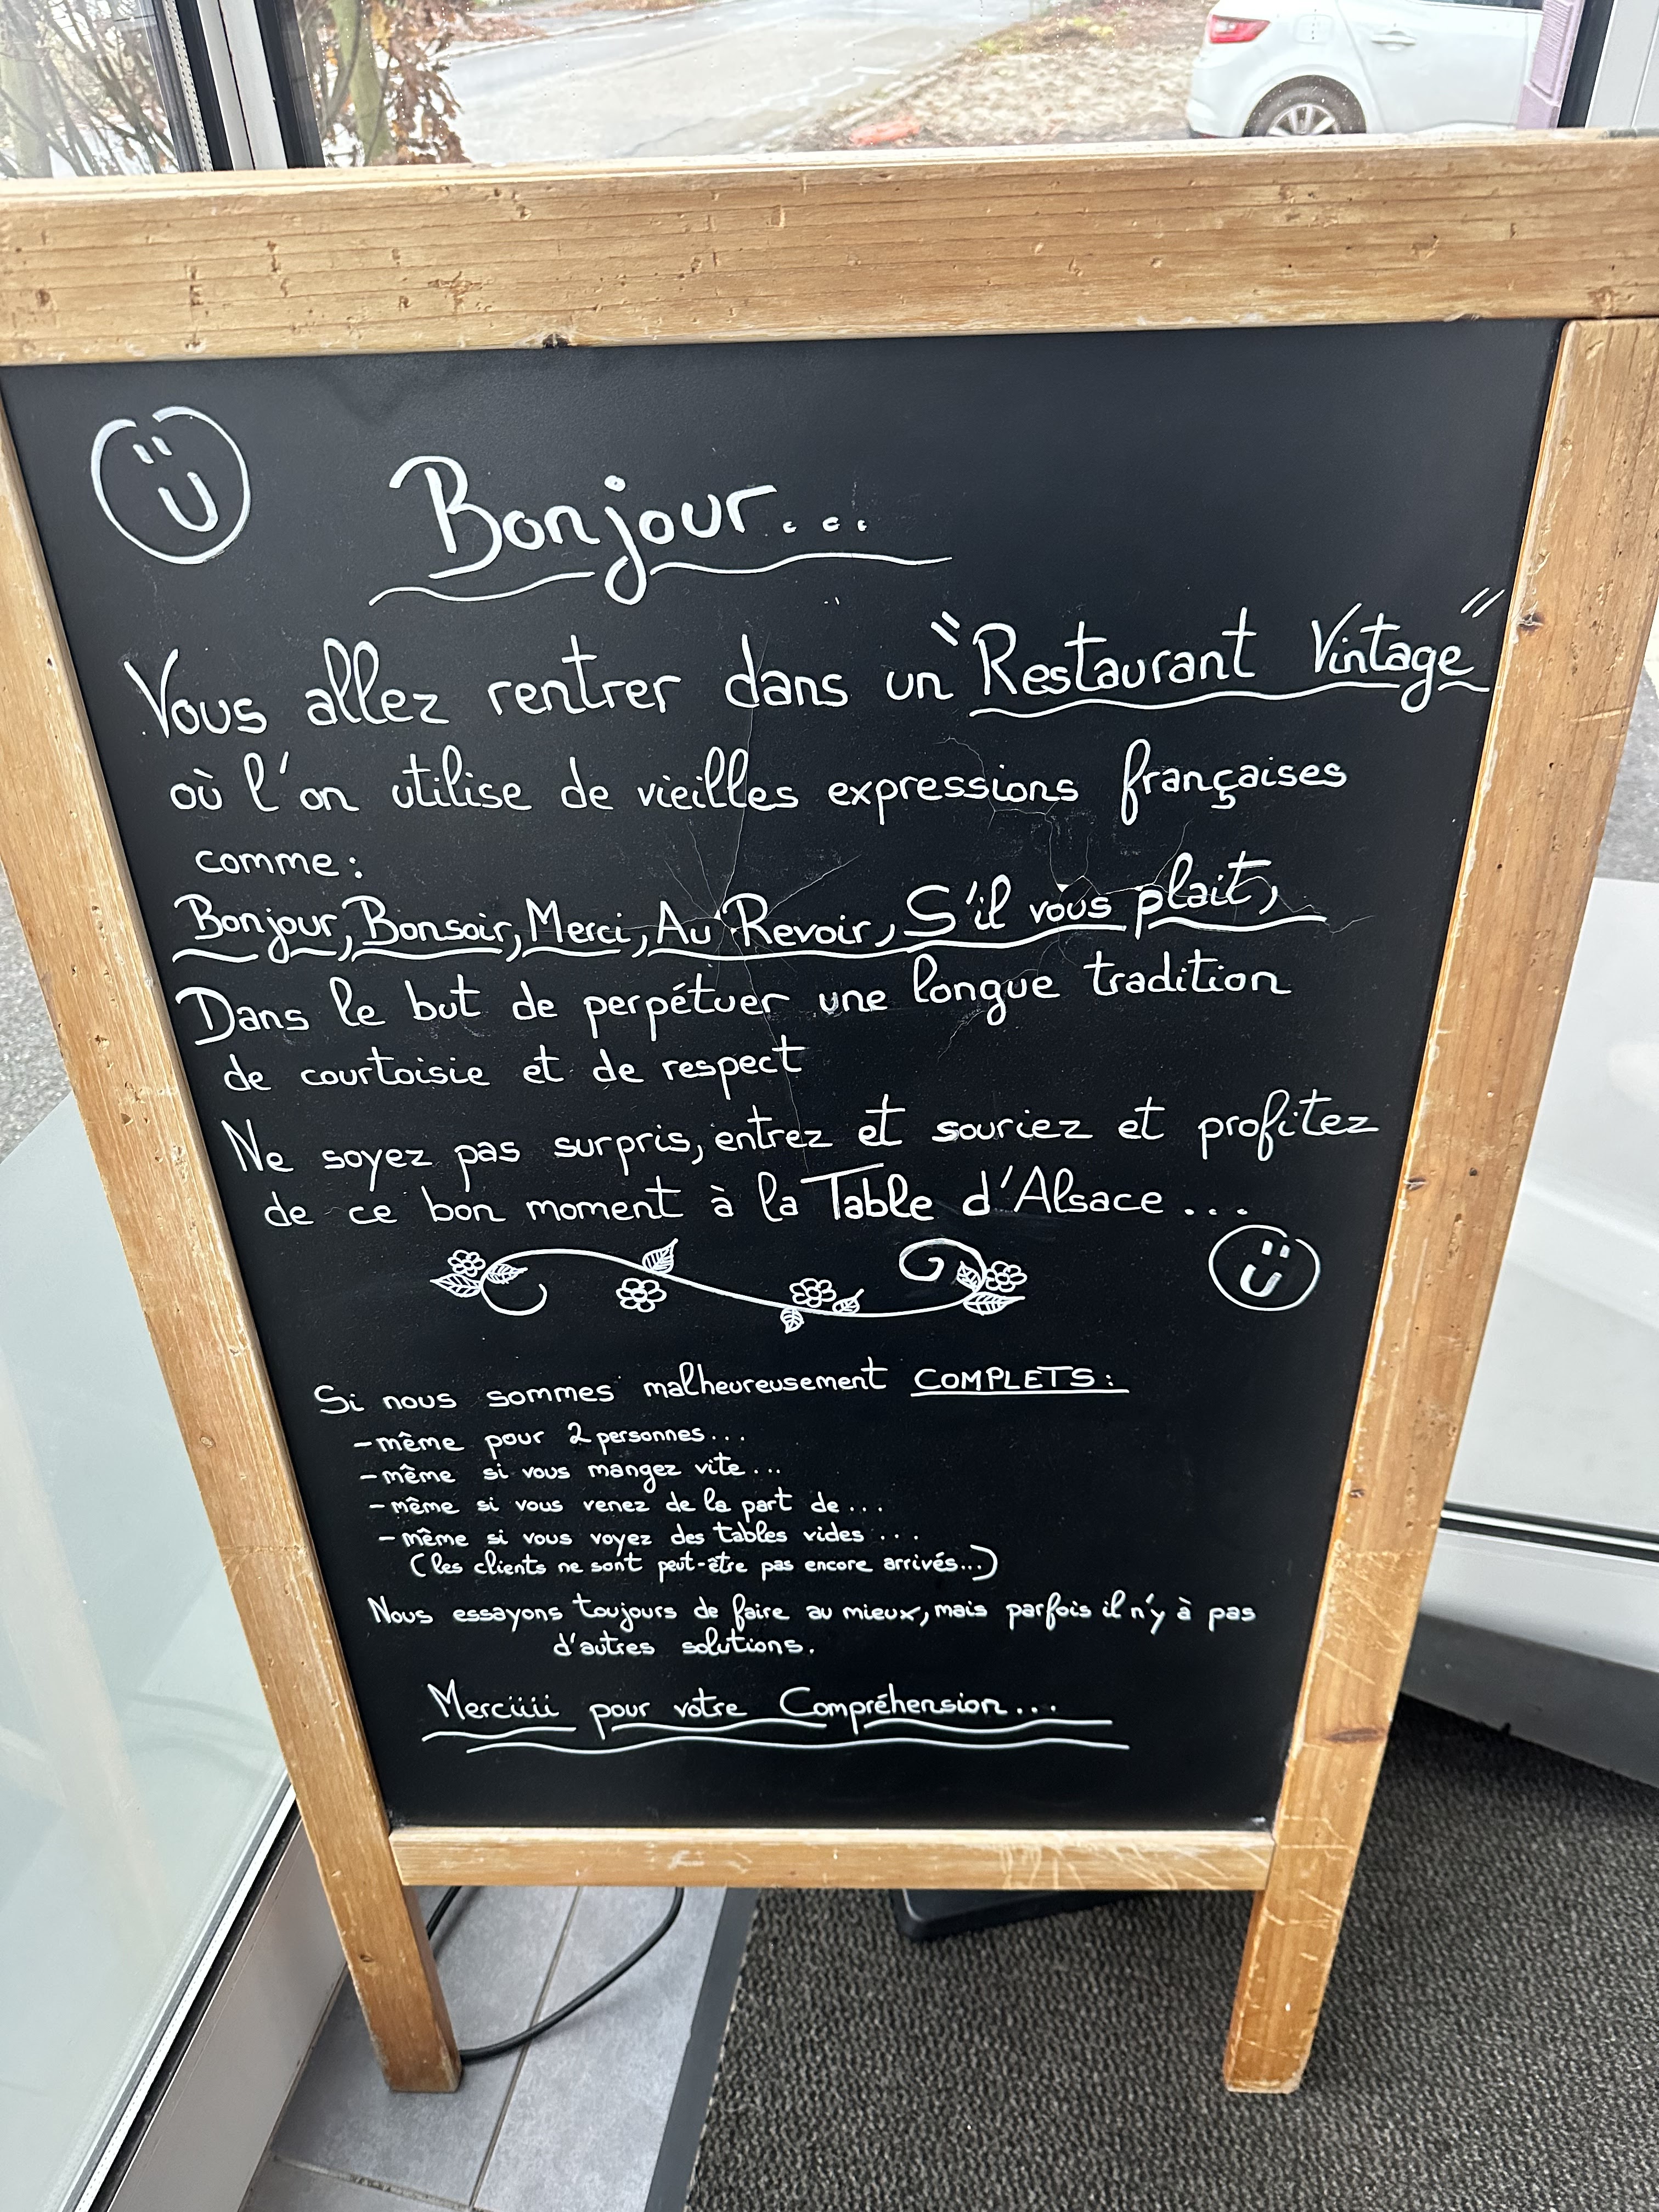 Bonjour...
Vous allez rentrer dans un "Restaurant Vintage"
où l'on utilise de vieilles expressions françaises
comme :
Bonjour, Bonsoir, Merci, Au Revoir, S'il vous plait,
Dans le but de perpétuer une longue tradition
de courtoisie et de respect
Ne soyez pas surpris, entrez et souriez et profitez
de ce bon moment à la Table d'Alsace...
Si nous sommes malheureusement COMPLETS :
- même pour 2 personnes...
- même si vous mangez vite...
- même si vous venez de la part de...
- même si vous voyez des tables vides...
(les clients ne sont peut-être pas encore arrivés...)
Nous essayons toujours de faire au mieux, mais parfois il n'y à pas
d'autres solutions.
Merciiii pour votre Compréhension...